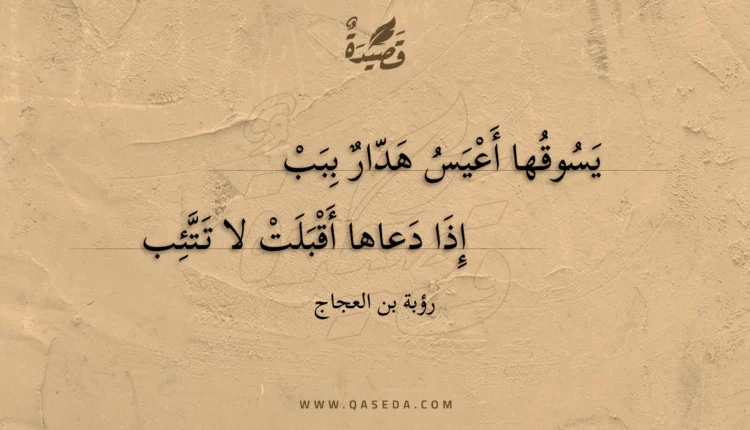 قَصِيدَةٌ
يَسُوقُها أَعْيَسُ هَدّارٌ بِبَبْ
إِذَا دَعاها أَقْبَلَتْ لا تَتَّئِب
رؤبة بن العجاج
WWW.QASEDA.COM